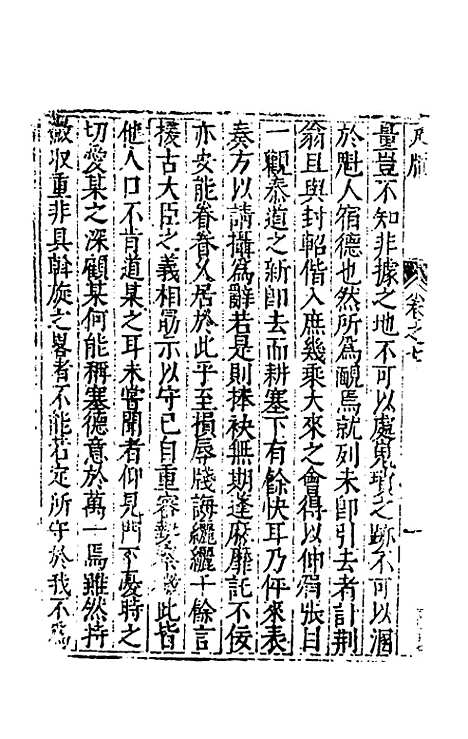 尺牘 卷之七 一
量豈不知非據之地不可以處瑣之跡不可以溷
於魁人宿德也然所爲靦焉就列未卽引去者計荆
翁且與封軺偕入庶幾乘大來之會得以仰眉張目
一觀泰道之新卽去而耕塞下有餘快耳乃伻來表
奏方以請攝爲辭若是則捧袂無期蓬麻靡託不佞
亦安能眷眷久居於此乎至損辱牋誨纚纚千餘言
援古大臣之義相勗示以守己自重容此皆
他人口不肯道某之耳未嘗聞者仰見門下憂時之
切愛某之深顧某何能稱塞德意於萬一焉雖然持
收重非具斡旋之畧者不能若定所守於我不